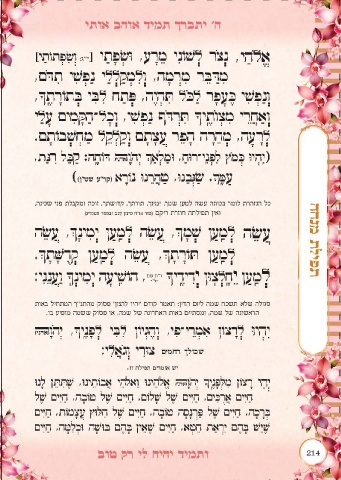 ה' יתברך תמיד אוהב אותי
אֱלֹהַי, נְצֹר לְשׁוֹנִי מֵרָע, וּשְׂפָתַי [וּשְׂפְתוֹתַי]
מִדַּבֵּר מִרְמָה, וְלִמְקַלְלַי נַפְשִׁי תִדֹּם,
וְנַפְשִׁי כֶּעָפָר לַכֹּל תִּהְיֶה, פְּתַח לִבִּי בְּתוֹרָתֶךָ,
וְאַחֲרֵי מִצְוֹתֶיךָ תִּרְדֹּף נַפְשִׁי, וְכָל־הַקָּמִים עָלַי
לְרָעָה, מְהֵרָה הָפֵר עֲצָתָם וְקַלְקֵל מַחְשְׁבוֹתָם.
(יִהְיוּ כְּמֹץ לִפְנֵי־רוּחַ, וּמַלְאַךְ יְהֹוָה דּוֹחֶה: קַבֵּל רִנַּת.
עַמְּךָ. שַׂגְּבֵנוּ. טַהֲרֵנוּ נוֹרָא (קר"ע שט"ן))
כל הנזהרת לומר בכוונה עשה למען שמך, ימינך, תורתך, קדושתך, זוכה ומקבלת פני שכינה,
ואין תפילתה חוזרת ריקם
עֲשֵׂה לְמַעַן שְׁמָךְ, עֲשֵׂה לְמַעַן יְמִינָךְ, עֲשֵׂה
לְמַעַן תּוֹרָתָךְ, עֲשֵׂה לְמַעַן קְדֻשָּׁתָךְ.
לְמַעַן יֵחָלְצוּן יְדִידֶיךָ, הוֹשִׁיעָה יְמִינְךָ וַעֲנֵנִי:
סגולה שלא תשכח שמה ליום הדין: תאמר קודם יהיו לרצון פסוק מהתנ"ך המתחיל באות
הראשונה של שמה, ומסתיים באות האחרונה של שמה. או פסוק ששמה מופיע בו.
יִהְיוּ לְרָצוֹן אִמְרֵי־פִי, וְהֶגְיוֹן לִבִּי לְפָנֶיךָ, יְהֹוָה
שכולך רחמים צוּרִי וְגֹאֲלִי:
יש אומרים תפילה זו:
יְהִי רָצוֹן מִלְּפָנֶיךָ יְהֹוָה אֱלֹהֵינוּ וֵאלֹהֵי אֲבוֹתֵינוּ, שֶׁתִּתֵּן לָנוּ
חַיִּים אֲרֻכִּים, חַיִּים שֶׁל שָׁלוֹם, חַיִּים שֶׁל טוֹבָה, חַיִּים שֶׁל
בְּרָכָה, חַיִּים שֶׁל פַּרְנָסָה טוֹבָה, חַיִּים שֶׁל חִלּוּץ עֲצָמוֹת, חַיִּים
שֶׁיֵּשׁ בָּהֶם יִרְאַת חֵטְא, חַיִּים שֶׁאֵין בָּהֶם בּוּשָׁה וּכְלִמָּה, חַיִּים
ותמיד יהיה לי רק טוב
תפילת מנחה
214